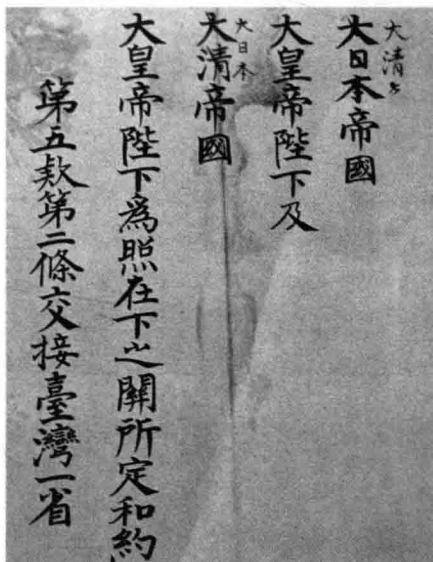 大清
大日本帝國
大皇帝陛下及
大日本
大清帝國
大皇帝陛下爲照在下之關所定和約
第五欵第二條交接臺灣一省